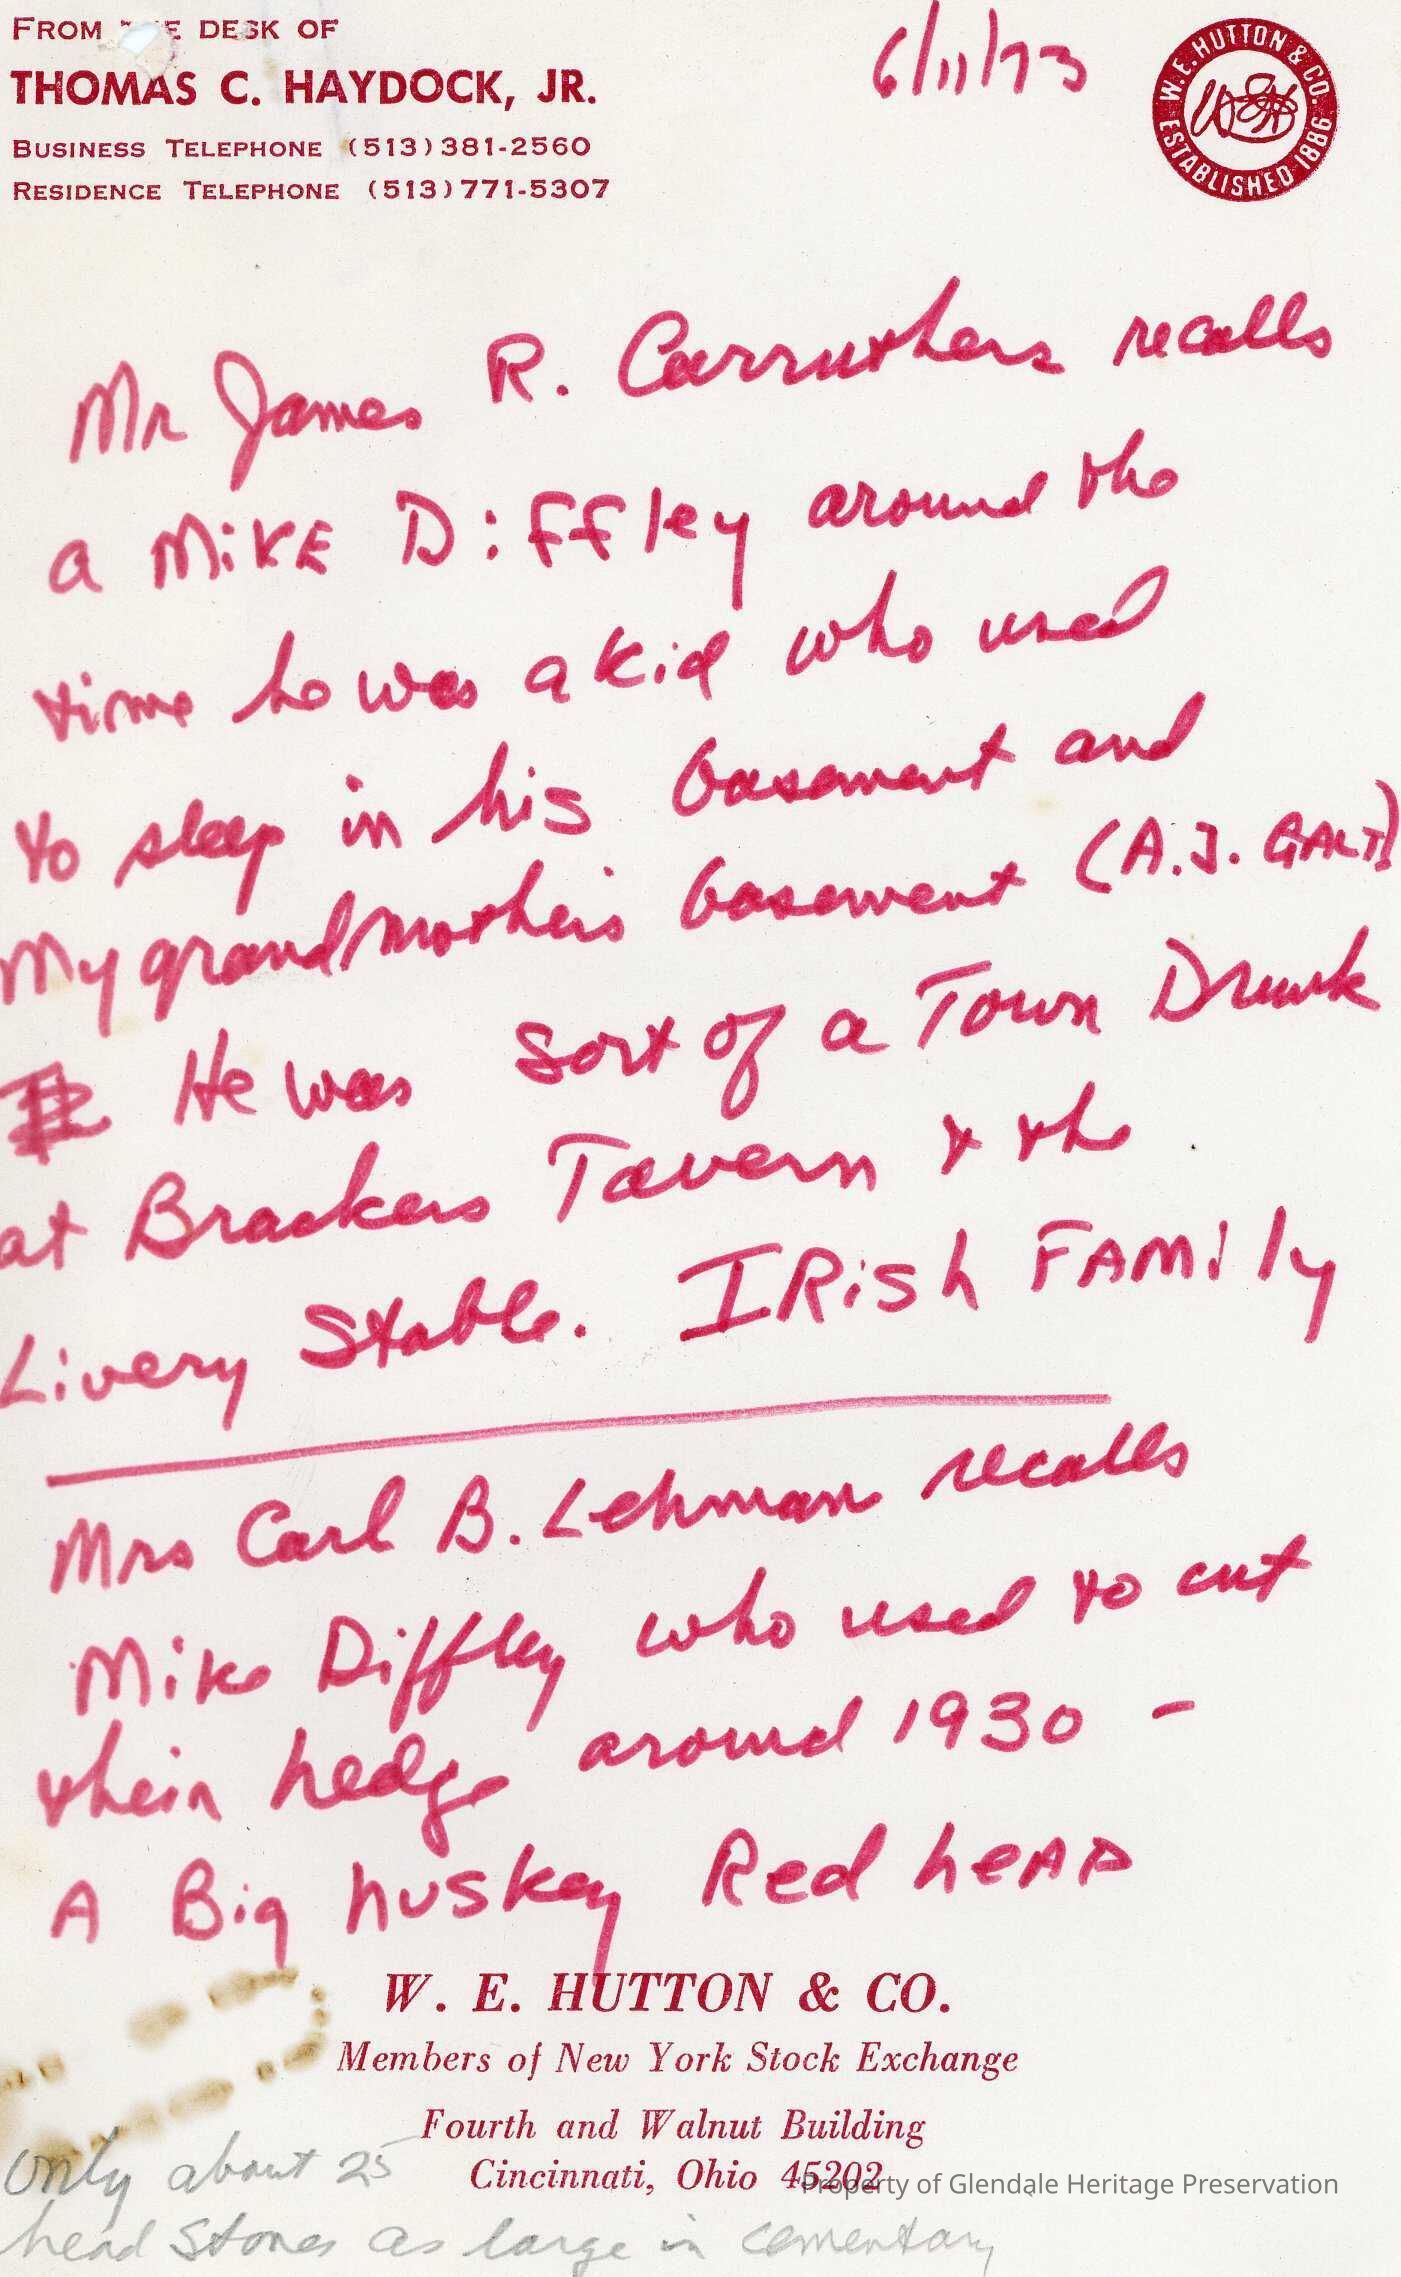 FROM THE DESK OF
THOMAS C. HAYDOCK, JR.
BUSINESS TELEPHONE (513) 381-2560
RESIDENCE TELEPHONE (513) 771-5307
6/11/73
W. E. HUTTON & CO.
ESTABLISHED 1886
Mr James R. Carruthers recalls
a MiKE Diffley around the
time he was a kid who used
to sleep in his basement and
My grandmothers basement (A.J. GALT)
He was sort of a Town Drunk
at Brackers Tavern & the
Livery Stable. IRish FAMily
Mrs Carl B. Lehman recalls
Mike Diffley who used to cut
their hedge around 1930 -
A Big huskey Red heAD
W. E. HUTTON & CO.
Members of New York Stock Exchange
Fourth and Walnut Building
Cincinnati, Ohio 45202
Property of Glendale Heritage Preservation
only about 25
head stones as large in cementary